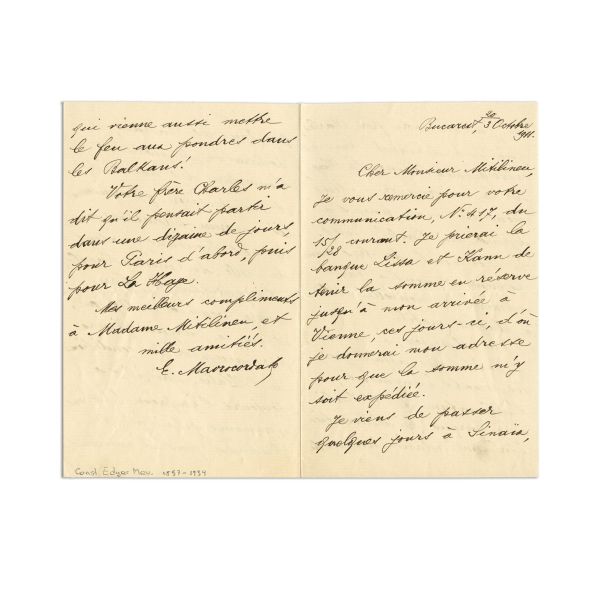 Bucarest, 20/3 Octobre
911.
Cher Monsieur Mitilineu,
Je vous remercie pour votre
communication, No. 417, du
15/28 courant. Je prierai la
banque Lissa et Kann de
tenir la somme en réserve
jusqu'à mon arrivée à
Vienne, ces jours-ci, d'où
je donnerai mon adresse
pour que la somme m'y
soit expédiée.
Je viens de passer
quelques jours à Sinaïa,
qui vienne aussi mettre
le feu aux poudres dans
les Balkans!
Votre frère Charles m'a
dit qu'il pensait partir
dans une dizaine de jours,
pour Paris d'abord, puis
pour La Haye.
Mes meilleurs compliments
à Madame Mitilineu, et
mille amitiés.
E. Mavrocordato
Const. Edgar Mav. 1857-1934